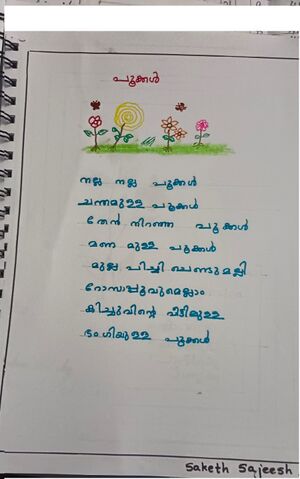 പൂക്കൾ
നല്ല നല്ല പൂക്കൾ
ചന്തമുള്ള പൂക്കൾ
തേൻ നിറഞ്ഞ പൂക്കൾ
മണ മുള്ള പൂക്കൾ
മുല്ല പിച്ചി ചെണ്ടുമല്ലി
റോസാപ്പൂവുമെല്ലാം
കിച്ചുവിന്റെ വീട്ടിലുള്ള
ഭംഗിയുള്ള പൂക്കൾ
Saketh Sajeesh